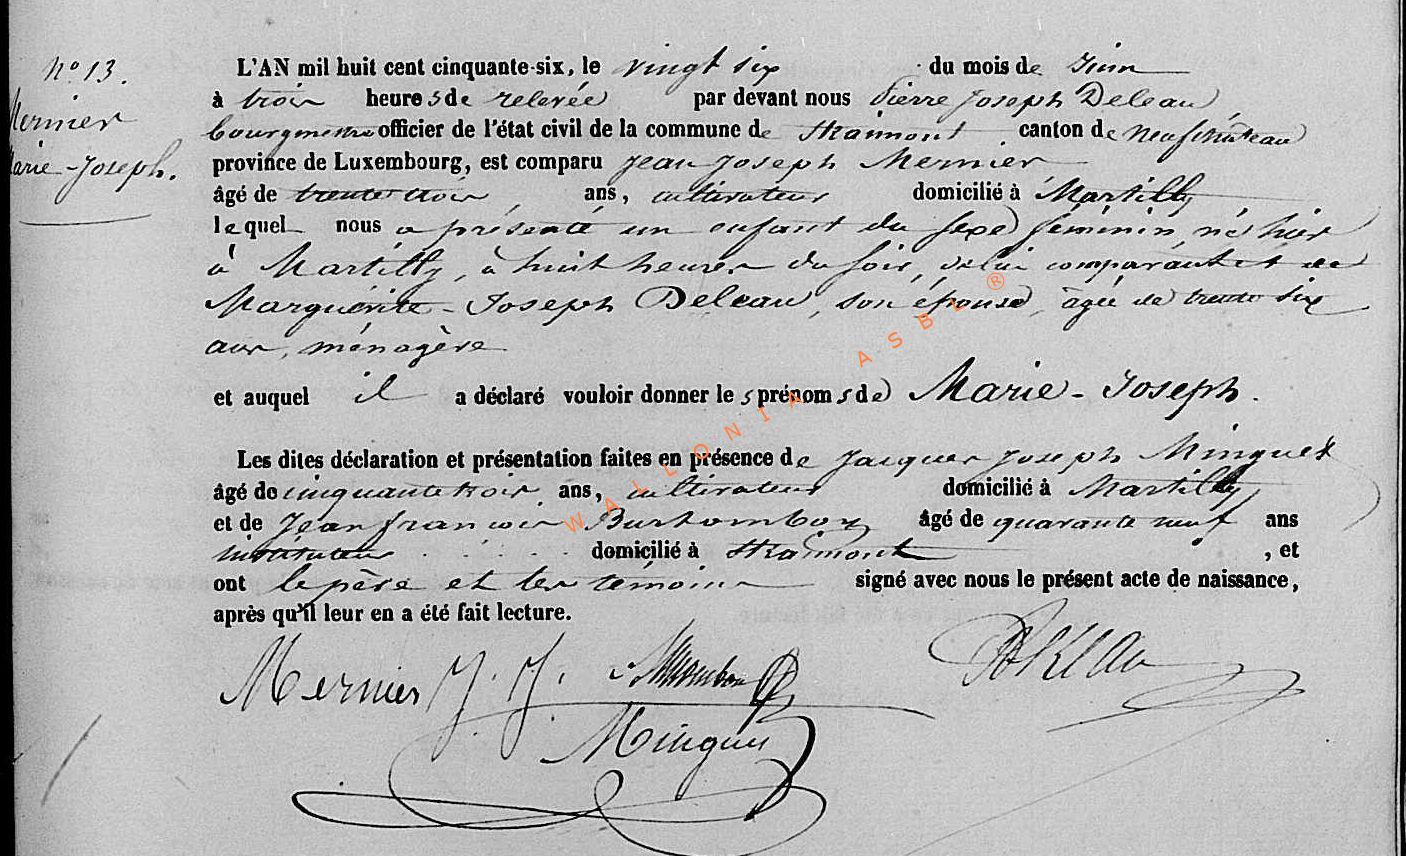 N° 13.
Mernier
Marie-Joseph.
L'AN mil huit cent cinquante-six, le vingt six du mois de Juin
à trois heures de relevée par devant nous Pierre Joseph Deleau
bourgmestre officier de l'état civil de la commune de Straimont canton de Neufchâteau
province de Luxembourg, est comparu Jean Joseph Mernier
âgé de trente trois ans, cultivateur domicilié à Martilly
lequel nous a présenté un enfant du sexe féminin, né hier
à Martilly, à huit heures du soir, de lui comparant et de
Marguérite-Joseph Deleau, son épouse, âgée de trente six
ans, ménagère
et auquel il a déclaré vouloir donner les prénoms de Marie-Joseph.
Les dites déclaration et présentation faites en présence de Jacques Joseph Minguet
âgé de cinquante trois ans, cultivateur domicilié à Martilly,
et de Jean françois âgé de quarante neuf ans
instituteur domicilié à Straimont, et
ont le père et les témoins signé avec nous le présent acte de naissance,
après qu'il leur en a été fait lecture.
Mernier J. J.
Minguet
WALLONIA ASBL ®